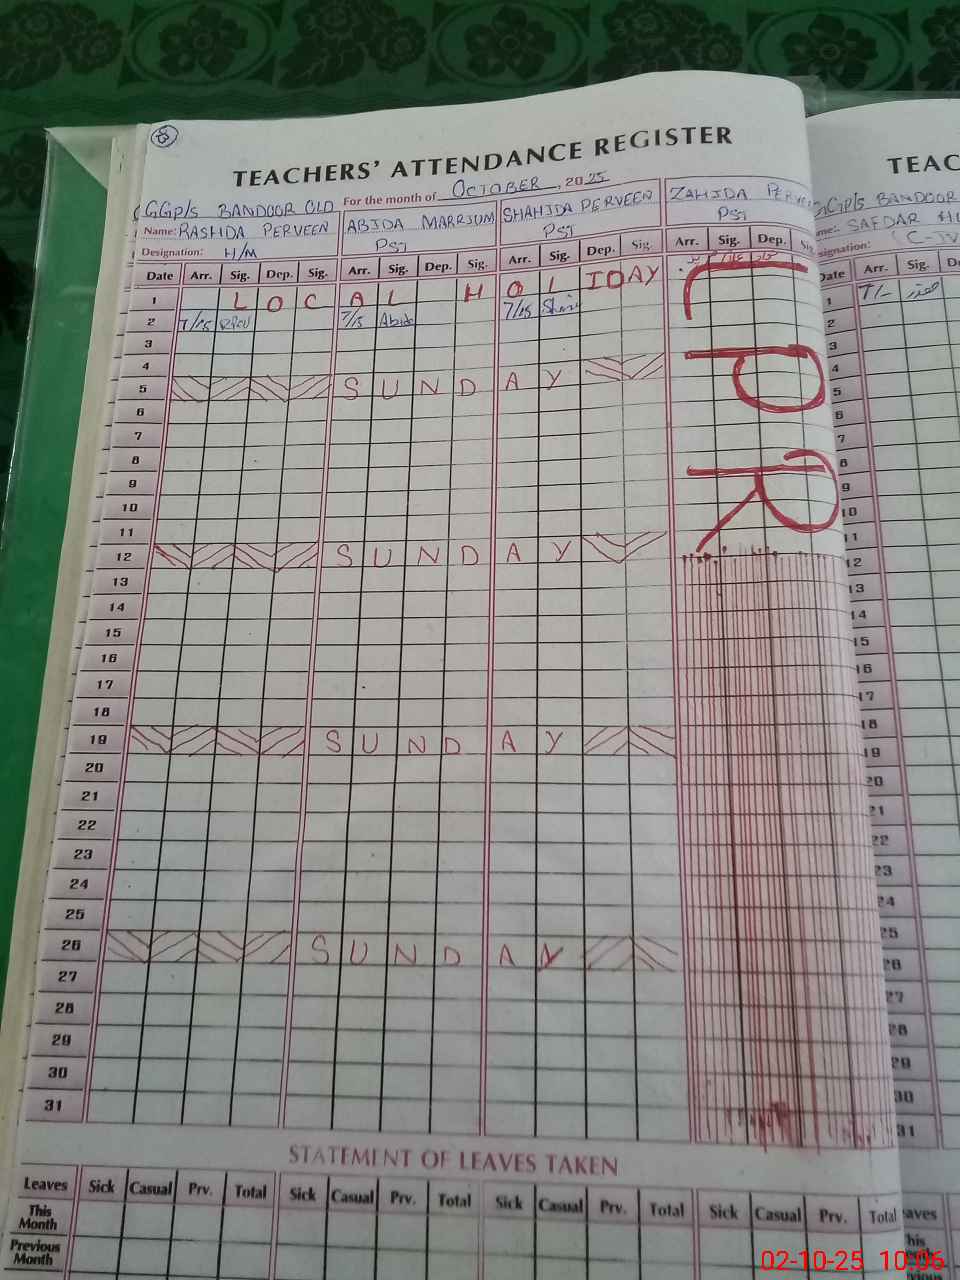 TEACHERS' ATTENDANCE REGISTER
For the month of OCTOBER, 2025
GGP/S BANDOOR OLD
Name: RASHDA PERVEEN ABIDA MARRIUM SHAHIDA PERVEEN ZAHIDA
Designation: H/M PST PST PST
Date Arr. Sig. Dep. Sig. Arr. Sig. Dep. Sig. Arr. Sig. Dep. Sig. Arr. Sig. Dep.
1 LOCAL HOLIDAY
2 7/15 7/15 Abida 7/15
3
4
5 SUNDAY
6
7
8
9
10
11
12 SUNDAY
13
14
15
16
17
18
19 SUNDAY
20
21
22
23
24
25
26 SUNDAY
27
28
29
30
31
LPR
STATEMENT OF LEAVES TAKEN
Leaves Sick Casual Prv. Total Sick Casual Prv. Total Sick Casual Prv. Total Sick Casual Prv. Total
This Month
Previous Month
TEAC
GGP/S BANDOOR
SAFDAR
Designation: C-IV
Date Arr. Sig.
1
2
3
4
5
6
7
8
9
10
11
12
13
14
15
16
17
18
19
20
21
22
23
24
25
26
27
28
29
30
31
02-10-25 10:06